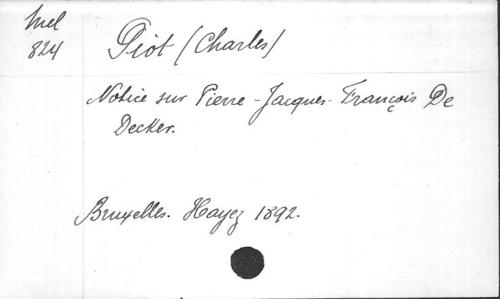 Mel
824
Piot (Charles)
Notice sur Pierre-Jacques-François De
Decker.
Bruxelles. Hayez 1892.